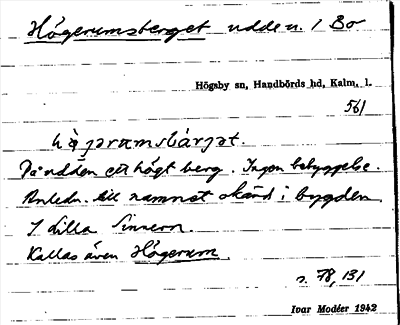 Högerumsberget udde n. / Bo
Högsby sn, Handbörds hd, Kalm. l.
561
På udden ett högt berg. Ingen bebyggelse.
Anledn. till namnet okänd i bygden
I Lilla Sinnern.
Kallas även Högerum.
s. 78, 131
Ivar Modéer 1942